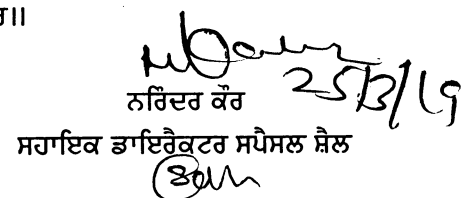 ਰ।।
25/3/19
ਨਰਿੰਦਰ ਕੌਰ
ਸਹਾਇਕ ਡਾਇਰੈਕਟਰ ਸਪੈਸਲ ਸ਼ੈਲ